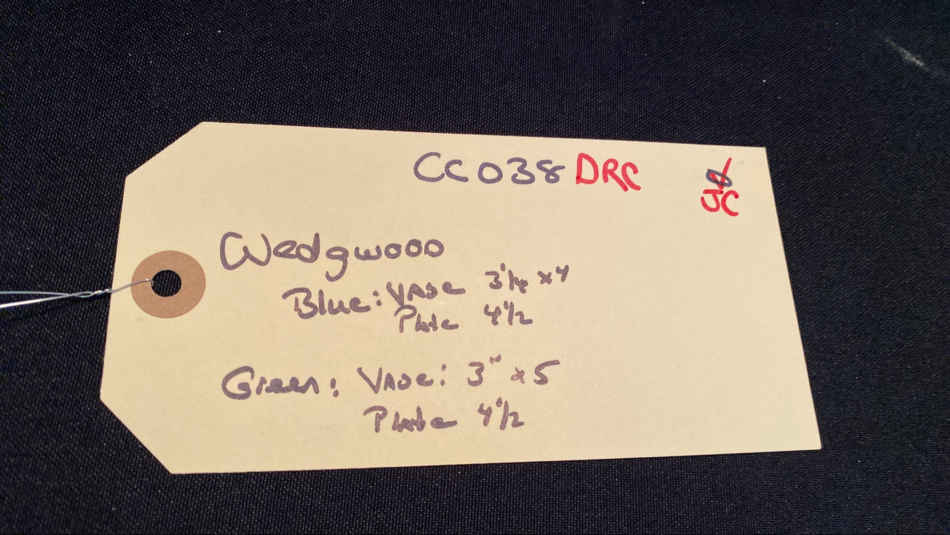 CC038 DRC
JC
Wedgwood
Blue: Vase 3 1/4 x 4
Plate 4 1/2
Green: Vase: 3" x 5
Plate 4 1/2